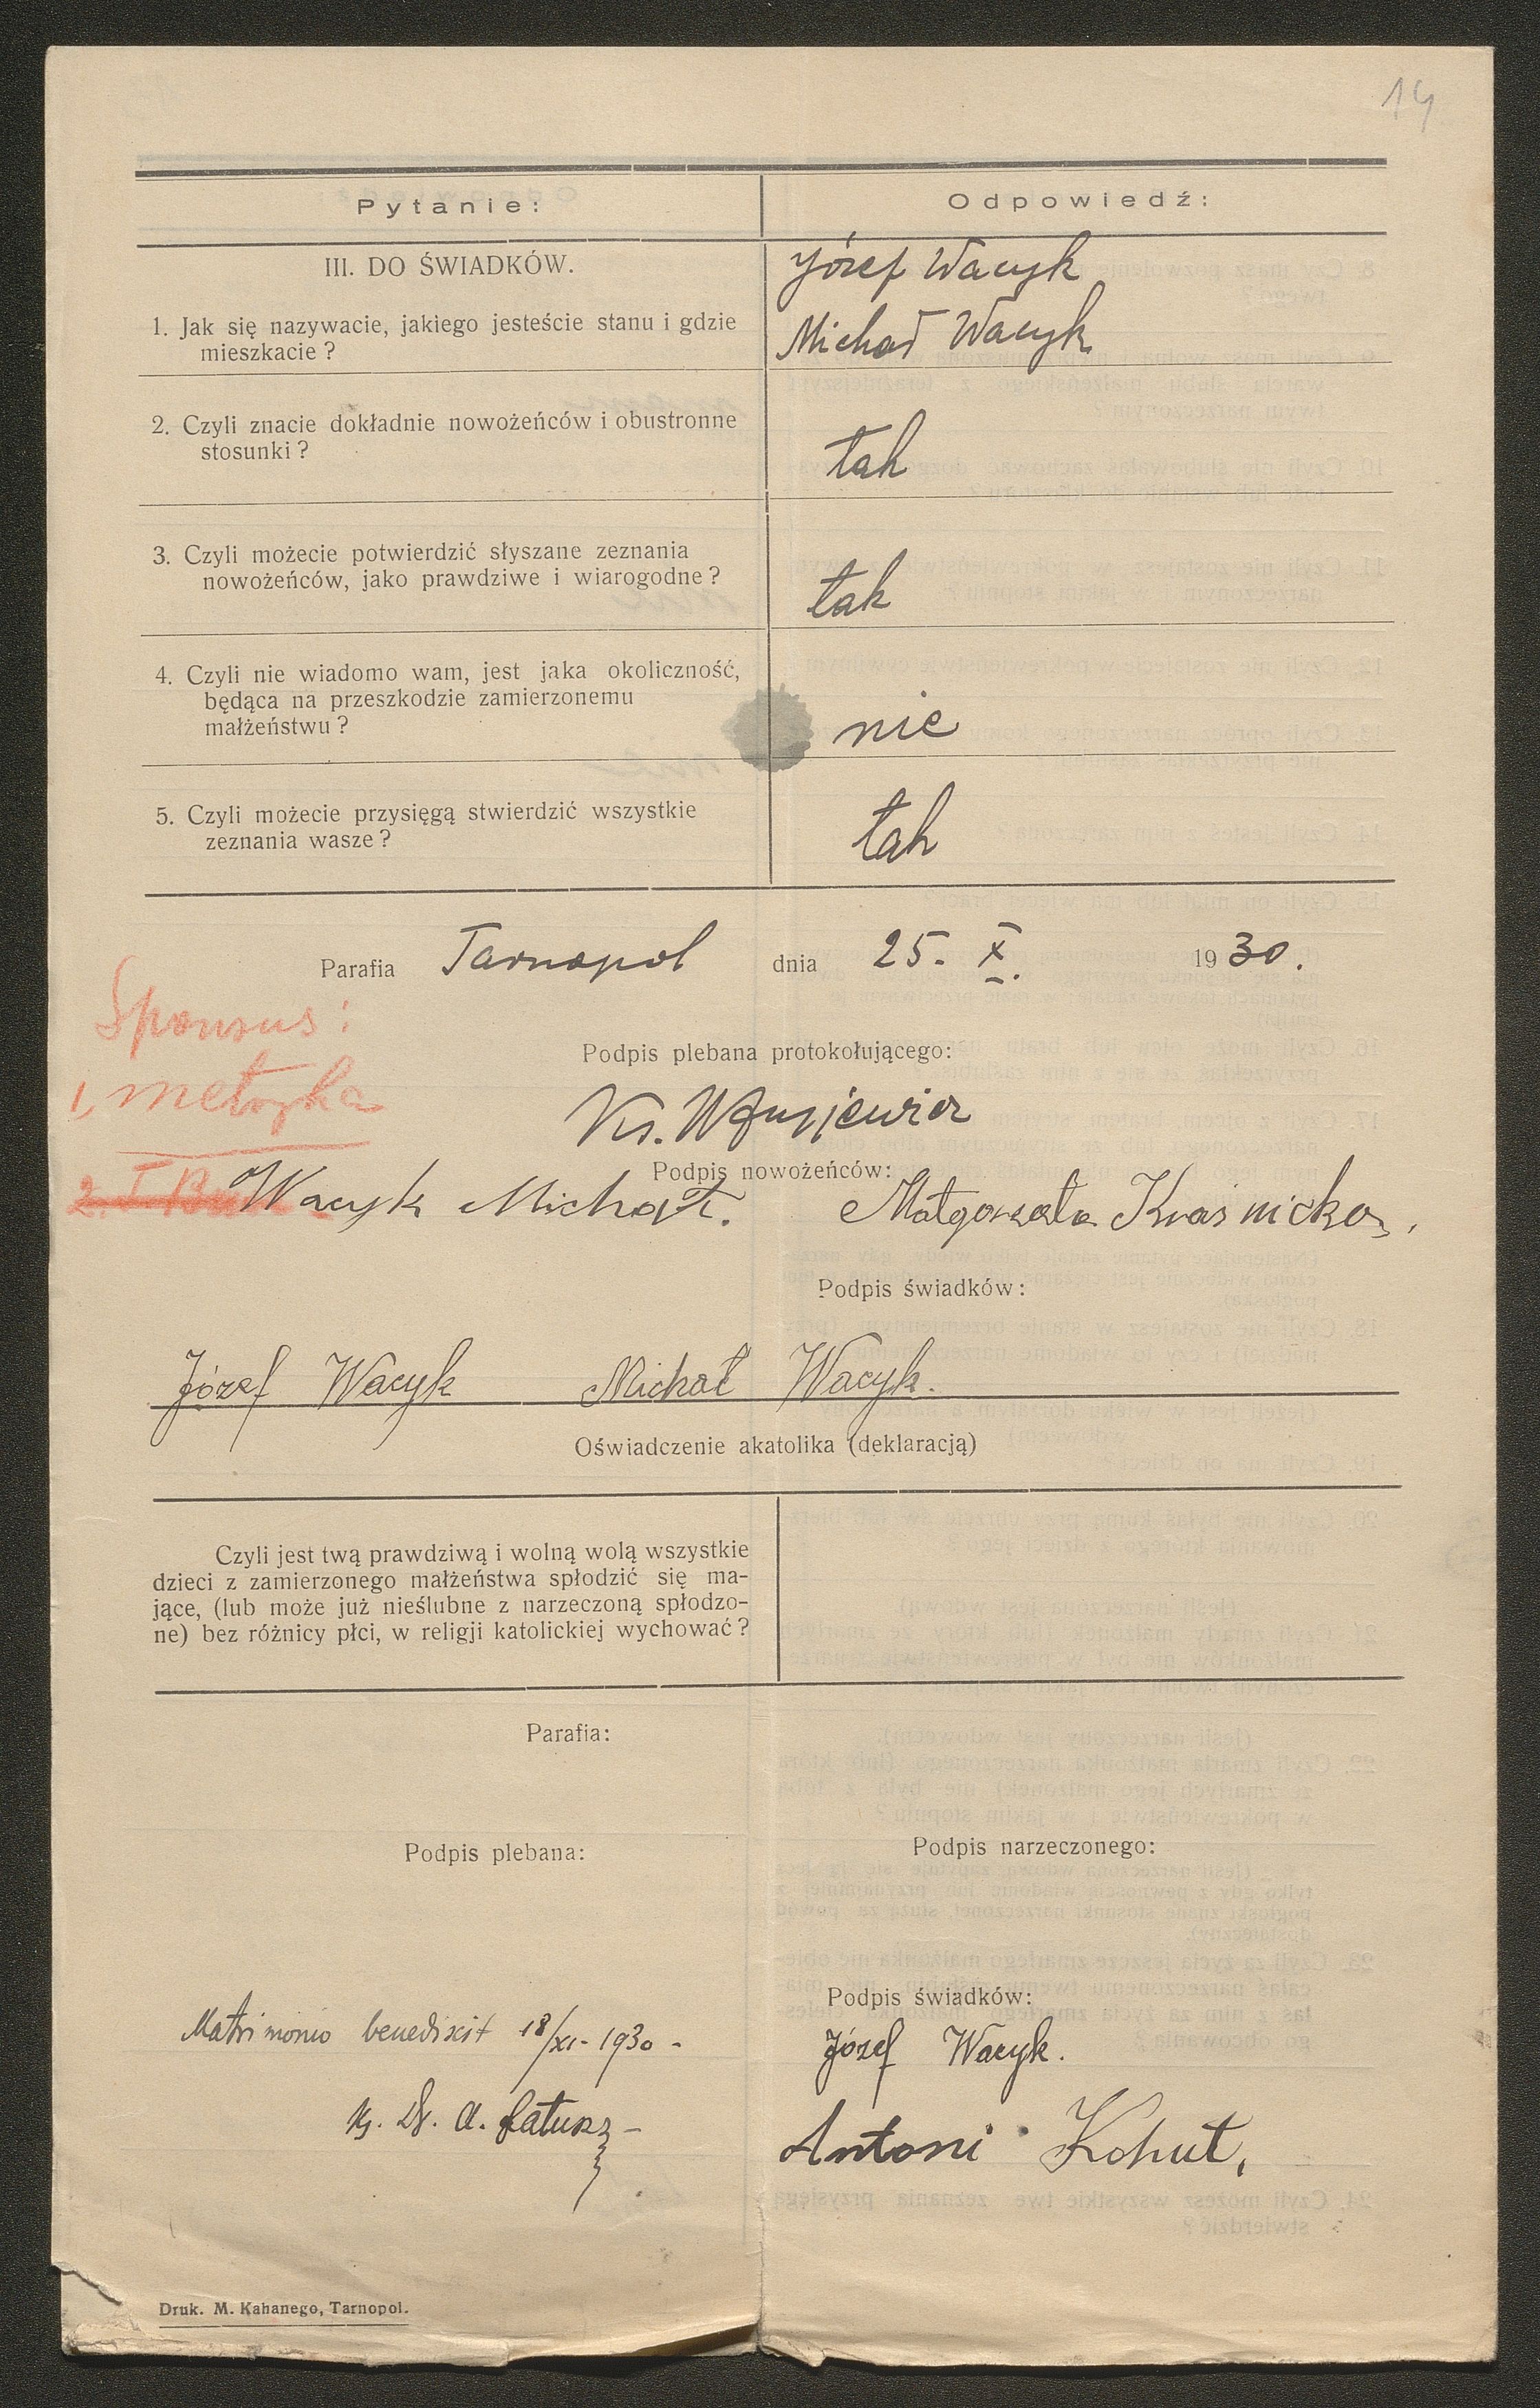 14
Pytanie:
Odpowiedź:
III. DO ŚWIADKÓW.
1. Jak się nazywacie, jakiego jesteście stanu i gdzie
mieszkacie ?
Józef Wacyk
Michał Wacyk
2. Czyli znacie dokładnie nowożeńców i obustronne
stosunki ?
tak
3. Czyli możecie potwierdzić słyszane zeznania
nowożeńców, jako prawdziwe i wiarogodne ?
tak
4. Czyli nie wiadomo wam, jest jaka okoliczność,
będąca na przeszkodzie zamierzonemu
małżeństwu ?
nie
5. Czyli możecie przysięgą stwierdzić wszystkie
zeznania wasze ?
tak
Parafia Tarnopol dnia 25. X. 1930.
Sponsus :
1, metryka
Podpis plebana protokołującego:
Ks.
Podpis nowożeńców:
Wacyk Michał. Małgorzata Kraśnicka,
Podpis świadków:
Józef Wacyk Michał Wacyk.
Oświadczenie akatolika (deklaracją)
Czyli jest twą prawdziwą i wolną wolą wszystkie
dzieci z zamierzonego małżeństwa spłodzić się ma-
jące, (lub może już nieślubne z narzeczoną spłodzo-
ne) bez różnicy płci, w religji katolickiej wychować ?
Parafia:
Podpis plebana:
Podpis narzeczonego:
Podpis świadków:
Matrimonio benedixit 18/XI - 1930 -
Ks. Dr. A.
Józef Wacyk.
Antoni Kohut,
Druk. M. Kahanego, Tarnopol.